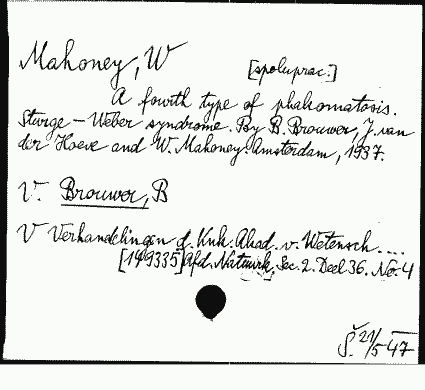 Mahoney, W
[spoluprac.]
A fourth type of phakomatosis.
Sturge - Weber syndrome. By B. Brouwer, J. van
der Hoeve and W. Mahoney. Amsterdam, 1937.
V. Brouwer, B
V Verhandelingen d. Knk. Akad. v. Wetensch....
[149335] Afd. Natuurk, Sec. 2. Deel 36. No. 4
Š. 21/5-47